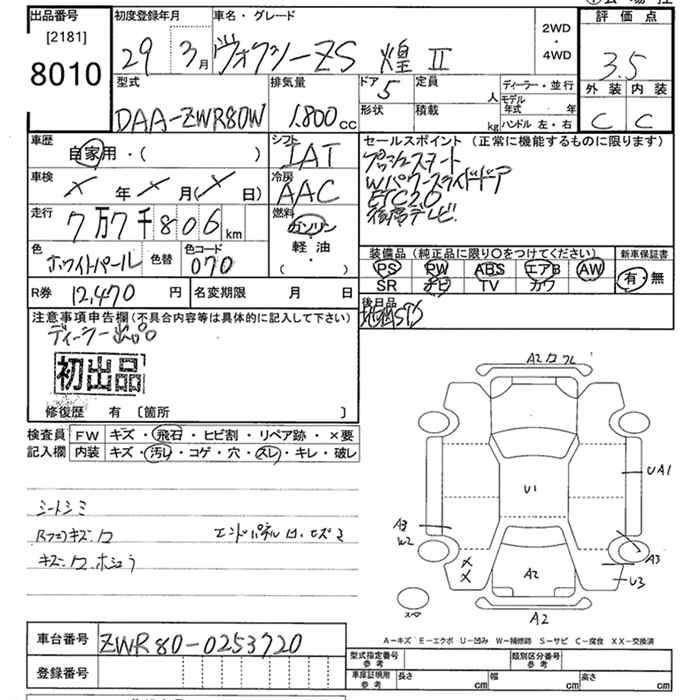 出品番号 初度登録年月 車名・グレード 評価点
[2181]
8010
29 3月 ヴォクシーZS 煌 II
2WD
・
4WD
3.5
型式 排気量 ドア 5 定員 人 ディーラー・並行 外装 内装
DAA-ZWR80W 1,800cc 形状 積載 kg モデル年式 年 C C
ハンドル 左・右
車歴 シフト セールスポイント (正常に機能するものに限ります)
自家用・( ) IAT
プッシュスタート
Wパワースライドドア
ETC2.0
テレビ
車検 × 年 × 月(× 日) 冷房 AAC
走行 7万7千806km 燃料 ガソリン・軽油・( )
色 ホワイトパール 色替 色コード 070
装備品 (純正品に限り○をつけてください) 新車保証書
PS PW ABS エアB AW
SR ナビ TV カワ
有・無
R券 12,470円 名変期限 月 日 後日品
注意事項申告欄 (不具合内容等は具体的に記入して下さい)
ディーラー出品
初出品
修復歴 有 〔箇所 〕
検査員 FW キズ・飛石・ヒビ割・リペア跡・×要
記入欄 内装 キズ・汚レ・コゲ・穴・スレ・キレ・破レ
シートシミ
エンドパネル
A2
U1
UA1
A3
W2
A3
U3
A2
A2
×
×
A-キズ E-エクボ U-凹み W-補修跡 S-サビ C-腐食 XX-交換済
車台番号 ZWR80-0253720
登録番号
型式指定番号 参考 類別区分番号 参考
車庫証明用 参考 長さ cm 幅 cm 高さ cm